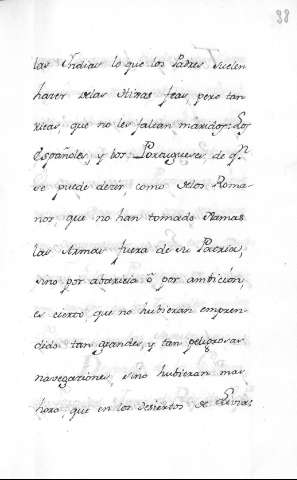 38
las Indias lo que los Padres suelen
hazer delas Hijas feas, pero tan
ricas, que no les faltan maridos: Los
Españoles, y los Portugueses de qn.
se puede dezir como delos Roma-
nos, que no han tomado Jamas
las Armas fuera de su Patria,
sino por abaricia ô por ambicion,
es cierto, que no hubieran empren-
dido tan grandes, y tan peligrosas
navegaciones, sino hubieran mas
horo, que en los desiertos de